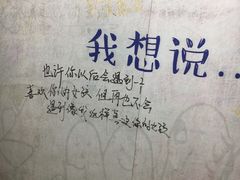 我想说...
也许你以后会遇到一个
喜欢你的女孩 但再也不会
遇到像我这样喜欢你的女孩